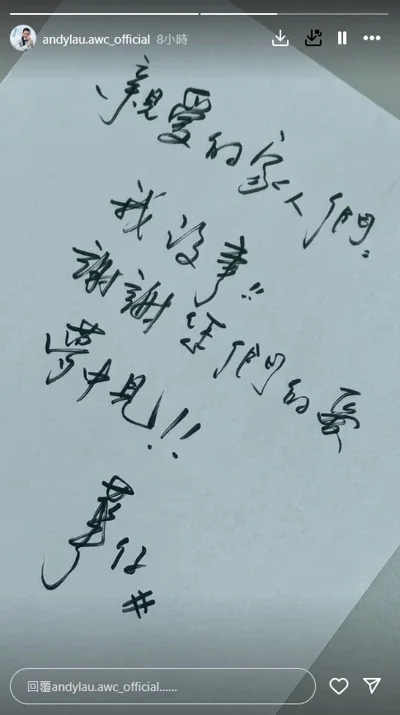 andylau.awc_official 8小時
親愛的家人們:
我沒事!!
謝謝您們的愛
夢中見!!
華仔
#
回覆andylau.awc_official......